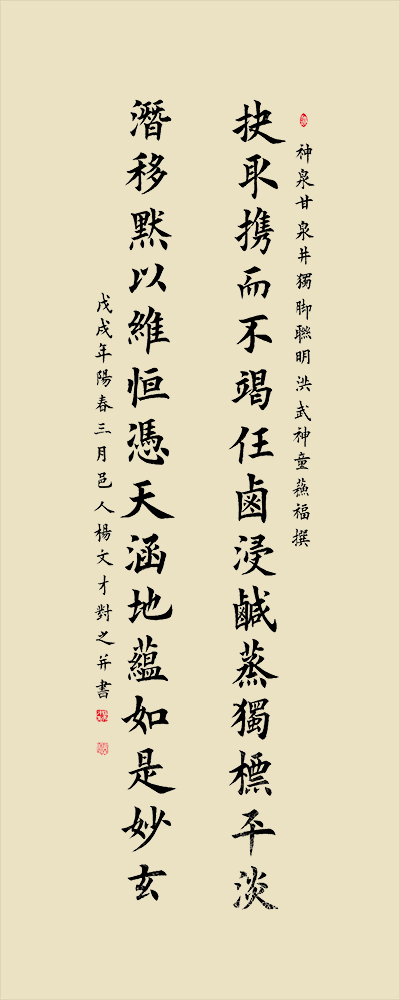 神泉甘泉井獨脚聯明洪武神童蘓福撰
抉取携而不竭任鹵浸鹹蒸獨標平淡
潛移默以維恒憑天涵地蘊如是妙玄
戊戌年陽春三月邑人楊文才對之并書